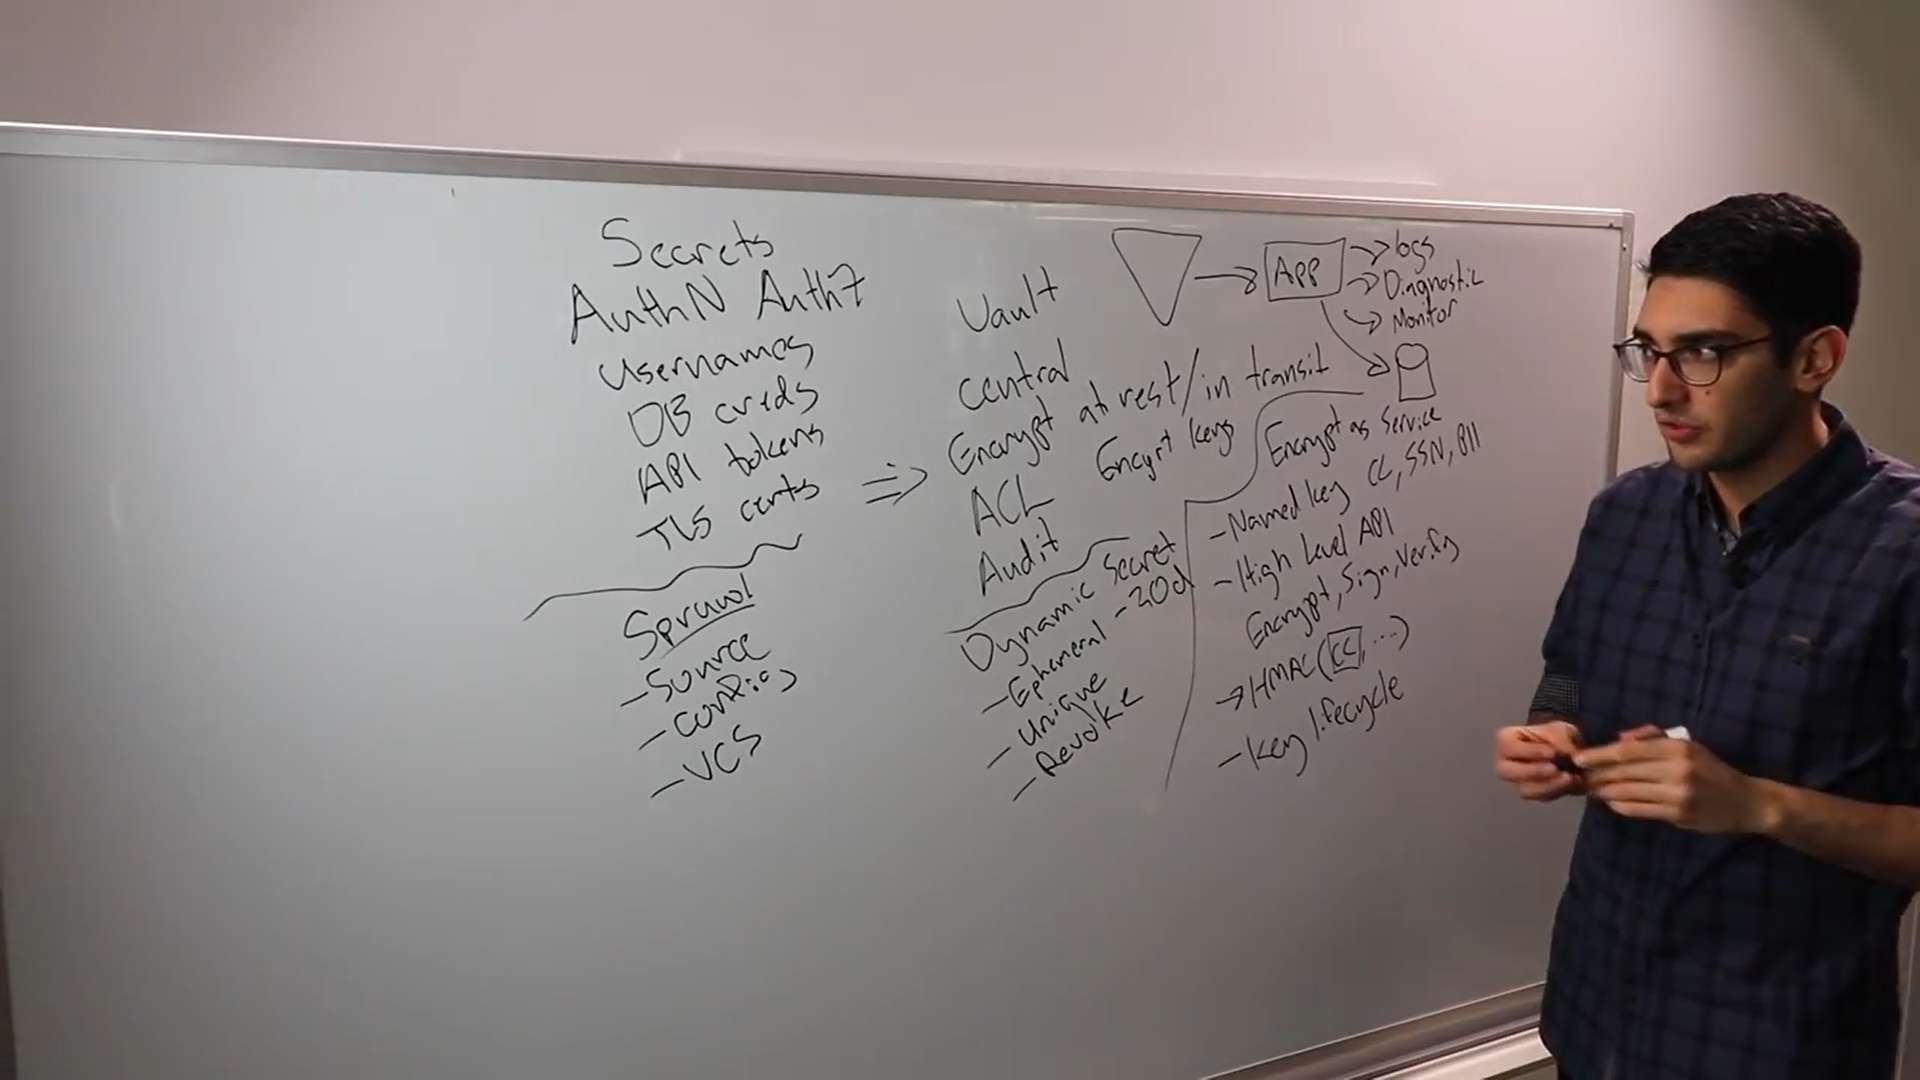 Secrets
AuthN AuthZ
Usernames
DB creds
API tokens
TLS certs
Sprawl
- Source
- Config
- VCS
⇒
Vault
Central
Encrypt at rest/in transit
Encrypt keys
ACL
Audit
Dynamic Secret
- Ephemeral - 30d
- Unique
- Revoke
App
logs
Diagnostic
Monitor
Encrypt as Service
- Named key CC, SSN, PII
- High Level API
Encrypt, Sign, Verify
→ HMAC(CC, ...)
- Key lifecycle